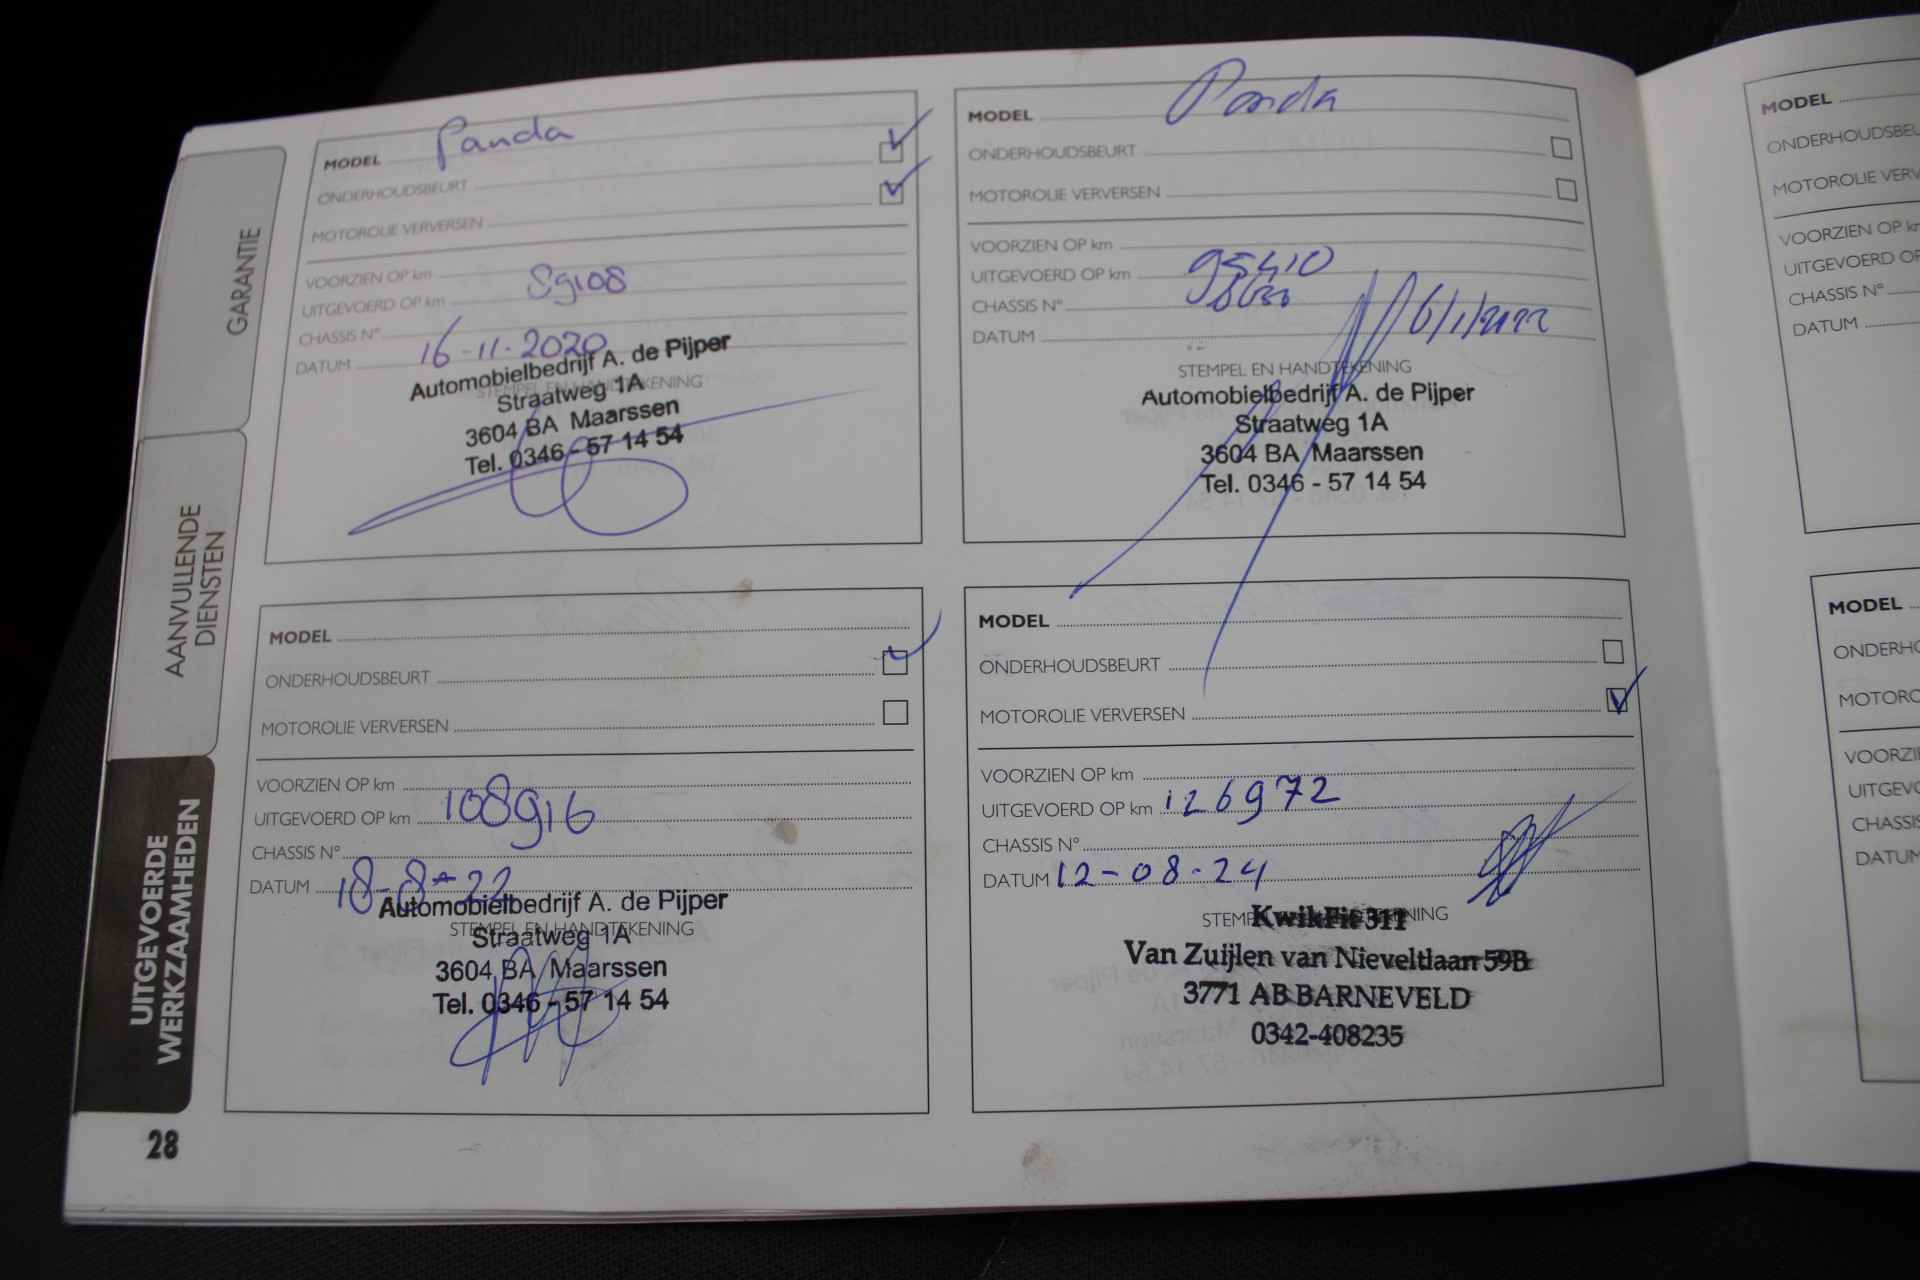 GARANTIE
AANVULLENDE
DIENSTEN
UITGEVOERDE
WERKZAAMHEDEN
28
MODEL Panda
ONDERHOUDSBEURT
MOTOROLIE VERVERSEN
VOORZIEN OP km
UITGEVOERD OP km 89108
CHASSIS N°
DATUM 16-11-2020
STEMPEL EN HANDTEKENING
Automobielbedrijf A. de Pijper
Straatweg 1A
3604 BA Maarssen
Tel. 0346 - 57 14 54
MODEL Panda
ONDERHOUDSBEURT
MOTOROLIE VERVERSEN
VOORZIEN OP km
UITGEVOERD OP km 95410
CHASSIS N°
DATUM 6/1/2022
STEMPEL EN HANDTEKENING
Automobielbedrijf A. de Pijper
Straatweg 1A
3604 BA Maarssen
Tel. 0346 - 57 14 54
MODEL
ONDERHOUDSBEURT
MOTOROLIE VERVERSEN
VOORZIEN OP km
UITGEVOERD OP km 108916
CHASSIS N°
DATUM 18-8-22
STEMPEL EN HANDTEKENING
Automobielbedrijf A. de Pijper
Straatweg 1A
3604 BA Maarssen
Tel. 0346 - 57 14 54
MODEL
ONDERHOUDSBEURT
MOTOROLIE VERVERSEN
VOORZIEN OP km
UITGEVOERD OP km 126972
CHASSIS N°
DATUM 12-08-24
STEMPEL EN HANDTEKENING
KwikFit 311
Van Zuijlen van Nieveltlaan 59B
3771 AB BARNEVELD
0342-408235
MODEL
ONDERHOUDSBEU
MOTOROLIE VERV
VOORZIEN OP k
UITGEVOERD OP
CHASSIS N°
DATUM
MODEL
ONDERHO
MOTORO
VOORZI
UITGEVO
CHASSIS
DATUM